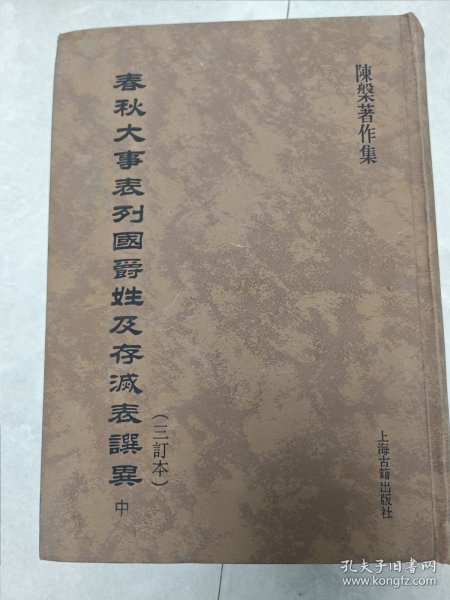 陳槃著作集
春秋大事表列國爵姓及存滅表譔異
(三訂本)
中
上海古籍出版社
孔夫子旧书网
www.kongfz.com